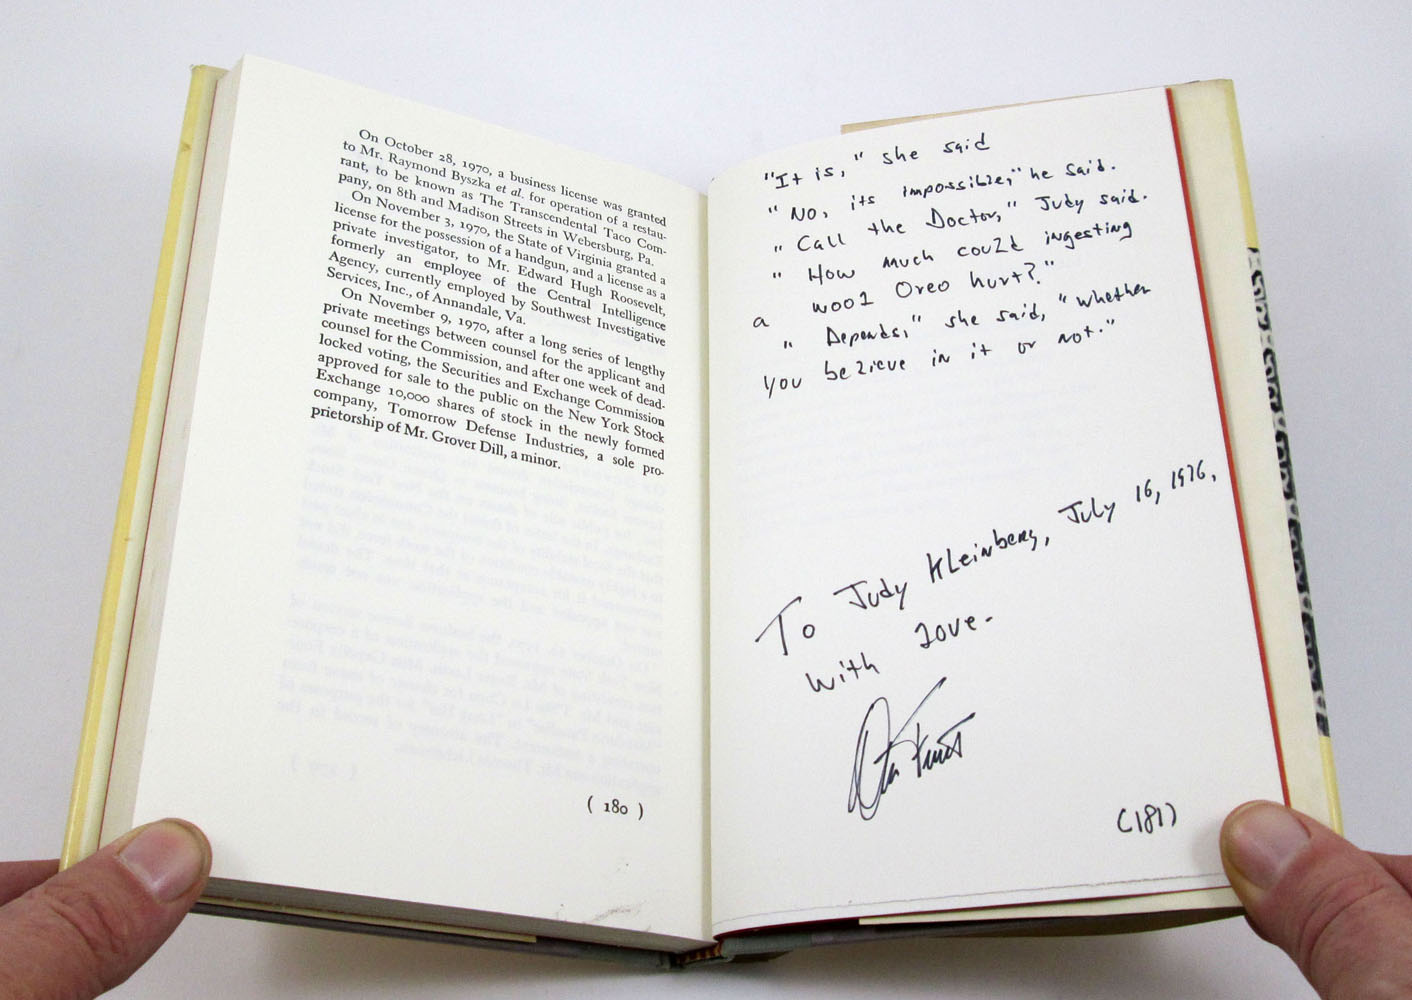 On October 28, 1970, a business license was granted
to Mr. Raymond Byszka et al. for operation of a restau-
rant, to be known as The Transcendental Taco Com-
pany, on 8th and Madison Streets in Webersburg, Pa.
On November 3, 1970, the State of Virginia granted a
license for the possession of a handgun, and a license as a
private investigator, to Mr. Edward Hugh Roosevelt,
formerly an employee of the Central Intelligence
Agency, currently employed by Southwest Investigative
Services, Inc., of Annandale, Va.
On November 9, 1970, after a long series of lengthy
private meetings between counsel for the applicant and
counsel for the Commission, and after one week of dead-
locked voting, the Securities and Exchange Commission
approved for sale to the public on the New York Stock
Exchange 10,000 shares of stock in the newly formed
company, Tomorrow Defense Industries, a sole pro-
prietorship of Mr. Grover Dill, a minor.
( 180 )
"It is," she said
"No, its impossible," he said.
"Call the Doctor," Judy said.
"How much could ingesting
a wool Oreo hurt?"
"Depends," she said, "whether
you believe in it or not."
To Judy Kleinberg, July 16, 1976,
with love.
(181)